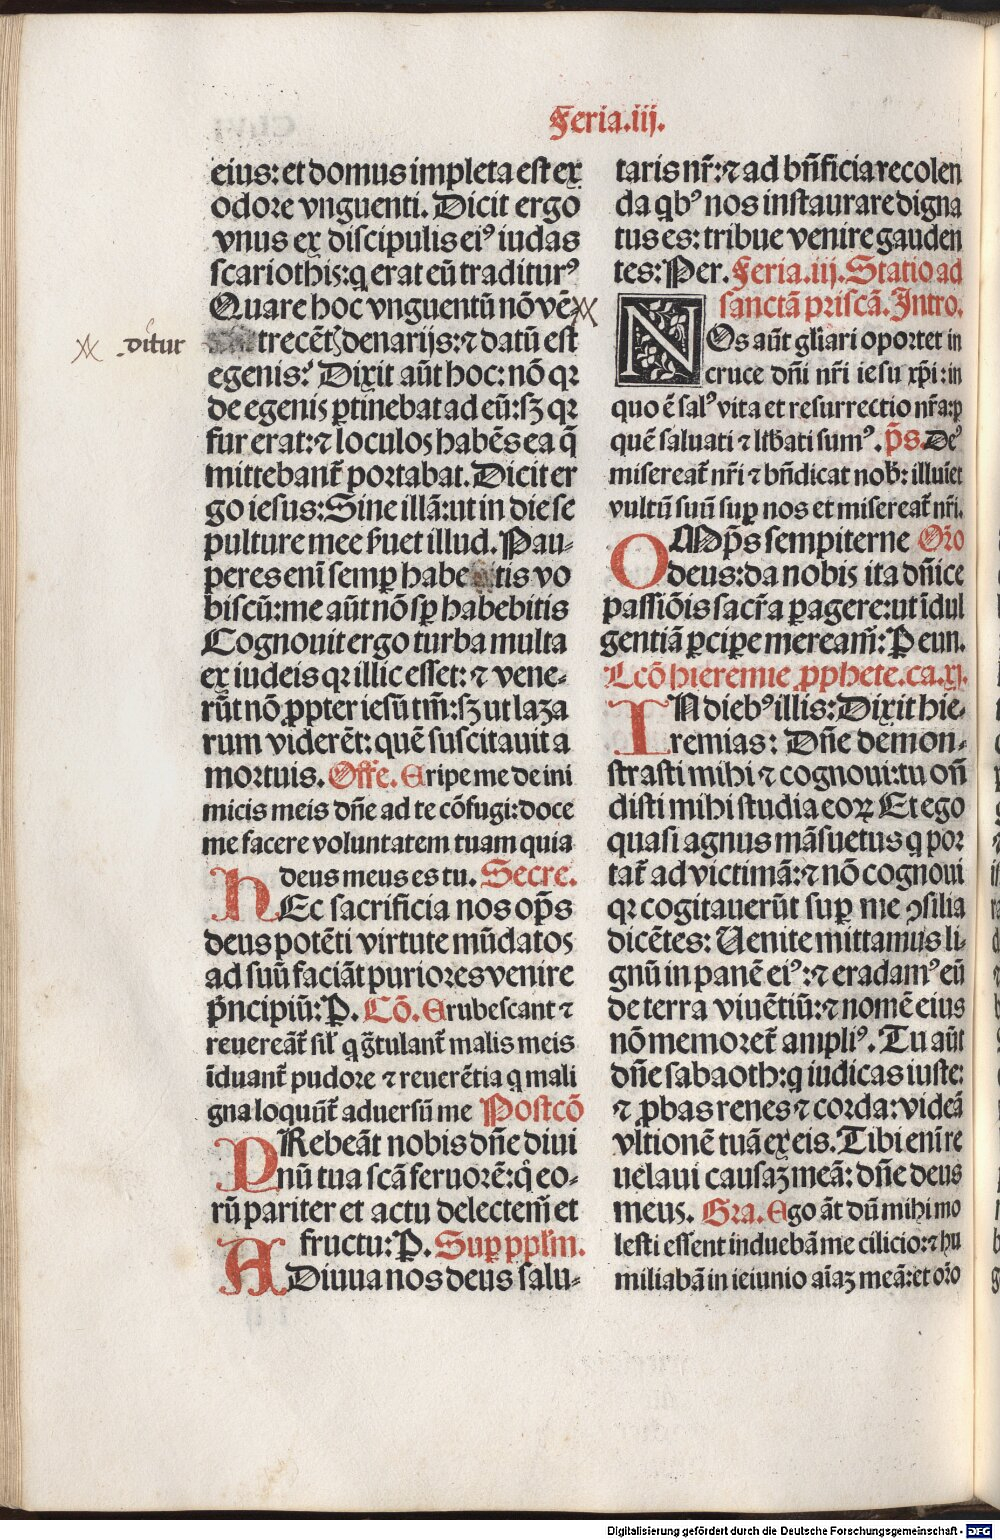 Feria.iij.
eius: et domus impleta est ex
odore vnguenti. Dicit ergo
vnus ex discipulis ei⁹ iudas
scariothis: q erat eū traditur⁹
Quare hoc vnguentū nō vē⸗
ditur
trecētꝭ denarijs: ⁊ datū est
egenis? Dixit aūt hoc: nō qꝛ
de egenis ꝑtinebat ad eū: sꝫ qꝛ
fur erat: ⁊ loculos habēs ea q̄
mittebant᷑ portabat. Dicit er
go iesus: Sine illā: ut in die se
pulture mee ẜuet illud. Pau⸗
peres enī semꝑ habe tis vo
biscū: me aūt nō sꝑ habebitis
Cognouit ergo turba multa
ex iudeis qꝛ illic esset: ⁊ vene⸗
rūt nō ꝓpter iesū tm̄: sꝫ ut laza
rum viderēt: quē suscitauit a
mortuis. Offe. Eripe me de ini
micis meis dn̄e ad te cōfugi: doce
me facere voluntatem tuam quia
deus meus es tu. Secre.
HEc sacrificia nos op̄s
deus potēti virtute mūdatos
ad suū faciāt puriores venire
p̄ncipiū: P. Cō. Erubescant ⁊
reuereāt᷑ sil̄ q ḡtulant᷑ malis meis
īduant᷑ pudore ⁊ reuerētia q mali
gna loquūt᷑ aduersū me Postcō
PRebeāt nobis dn̄e diui
nū tua scā feruorē: q̇ eo⸗
rū pariter et actu delectem᷑ et
fructu: P. Suꝑ ppl̄m.
ADiuua nos deus salu⸗
taris nr̄: ⁊ ad bn̄ficia recolen
da qb⁹ nos instaurare digna
tus es: tribue venire gauden
tes: Per. Feria.iij. Statio ad
sanctā priscā. Intro.
NOs aūt gl̄iari oportet in
cruce dn̄i nr̄i iesu xp̄i: in
quo ē sal⁹ vita et resurrectio nr̄a: ꝑ
quē saluati ⁊ lib̄ati sum⁹. p̄s. De⁹
misereat᷑ nr̄i ⁊ bn̄dicat nob̄: illuīet
vultū suū suꝑ nos et misereat᷑ nr̄i.
OMp̄s sempiterne Oro
deus: da nobis ita dn̄ice
passiōis sacr̄a ꝑagere: ut īdul
gentiā ꝑcipe meream᷑: P eun.
Lcō hieremie ꝓphete. ca. xj.
IN dieb⁹ illis: Dixit hie⸗
remias: Dn̄e demon⸗
strasti mihi ⁊ cognoui: tu on̄
disti mihi studia eoꝝ Et ego
quasi agnus māsuetus q por
tat᷑ ad victimā: ⁊ nō cognoui
qꝛ cogitauerūt suꝑ me ꝯsilia
dicētes: Uenite mittamus li⸗
gnū in panē ei⁹: ⁊ eradam⁹ eū
de terra viuētiū: ⁊ nomē eius
nō memoret᷑ ampli⁹. Tu aūt
dn̄e sabaoth: q iudicas iuste:
⁊ ꝓbas renes ⁊ corda: videā
vltionē tuā ex eis. Tibi enī re
uelaui causaꝫ meā: dn̄e deus
meus. Gra. Ego āt dū mihi mo
lesti essent induebā me cilicio: ⁊ hu
miliabā in ieiunio aīaꝫ meā: et or̄o
Digitalisierung gefördert durch die Deutsche Forschungsgemeinschaft - DFG